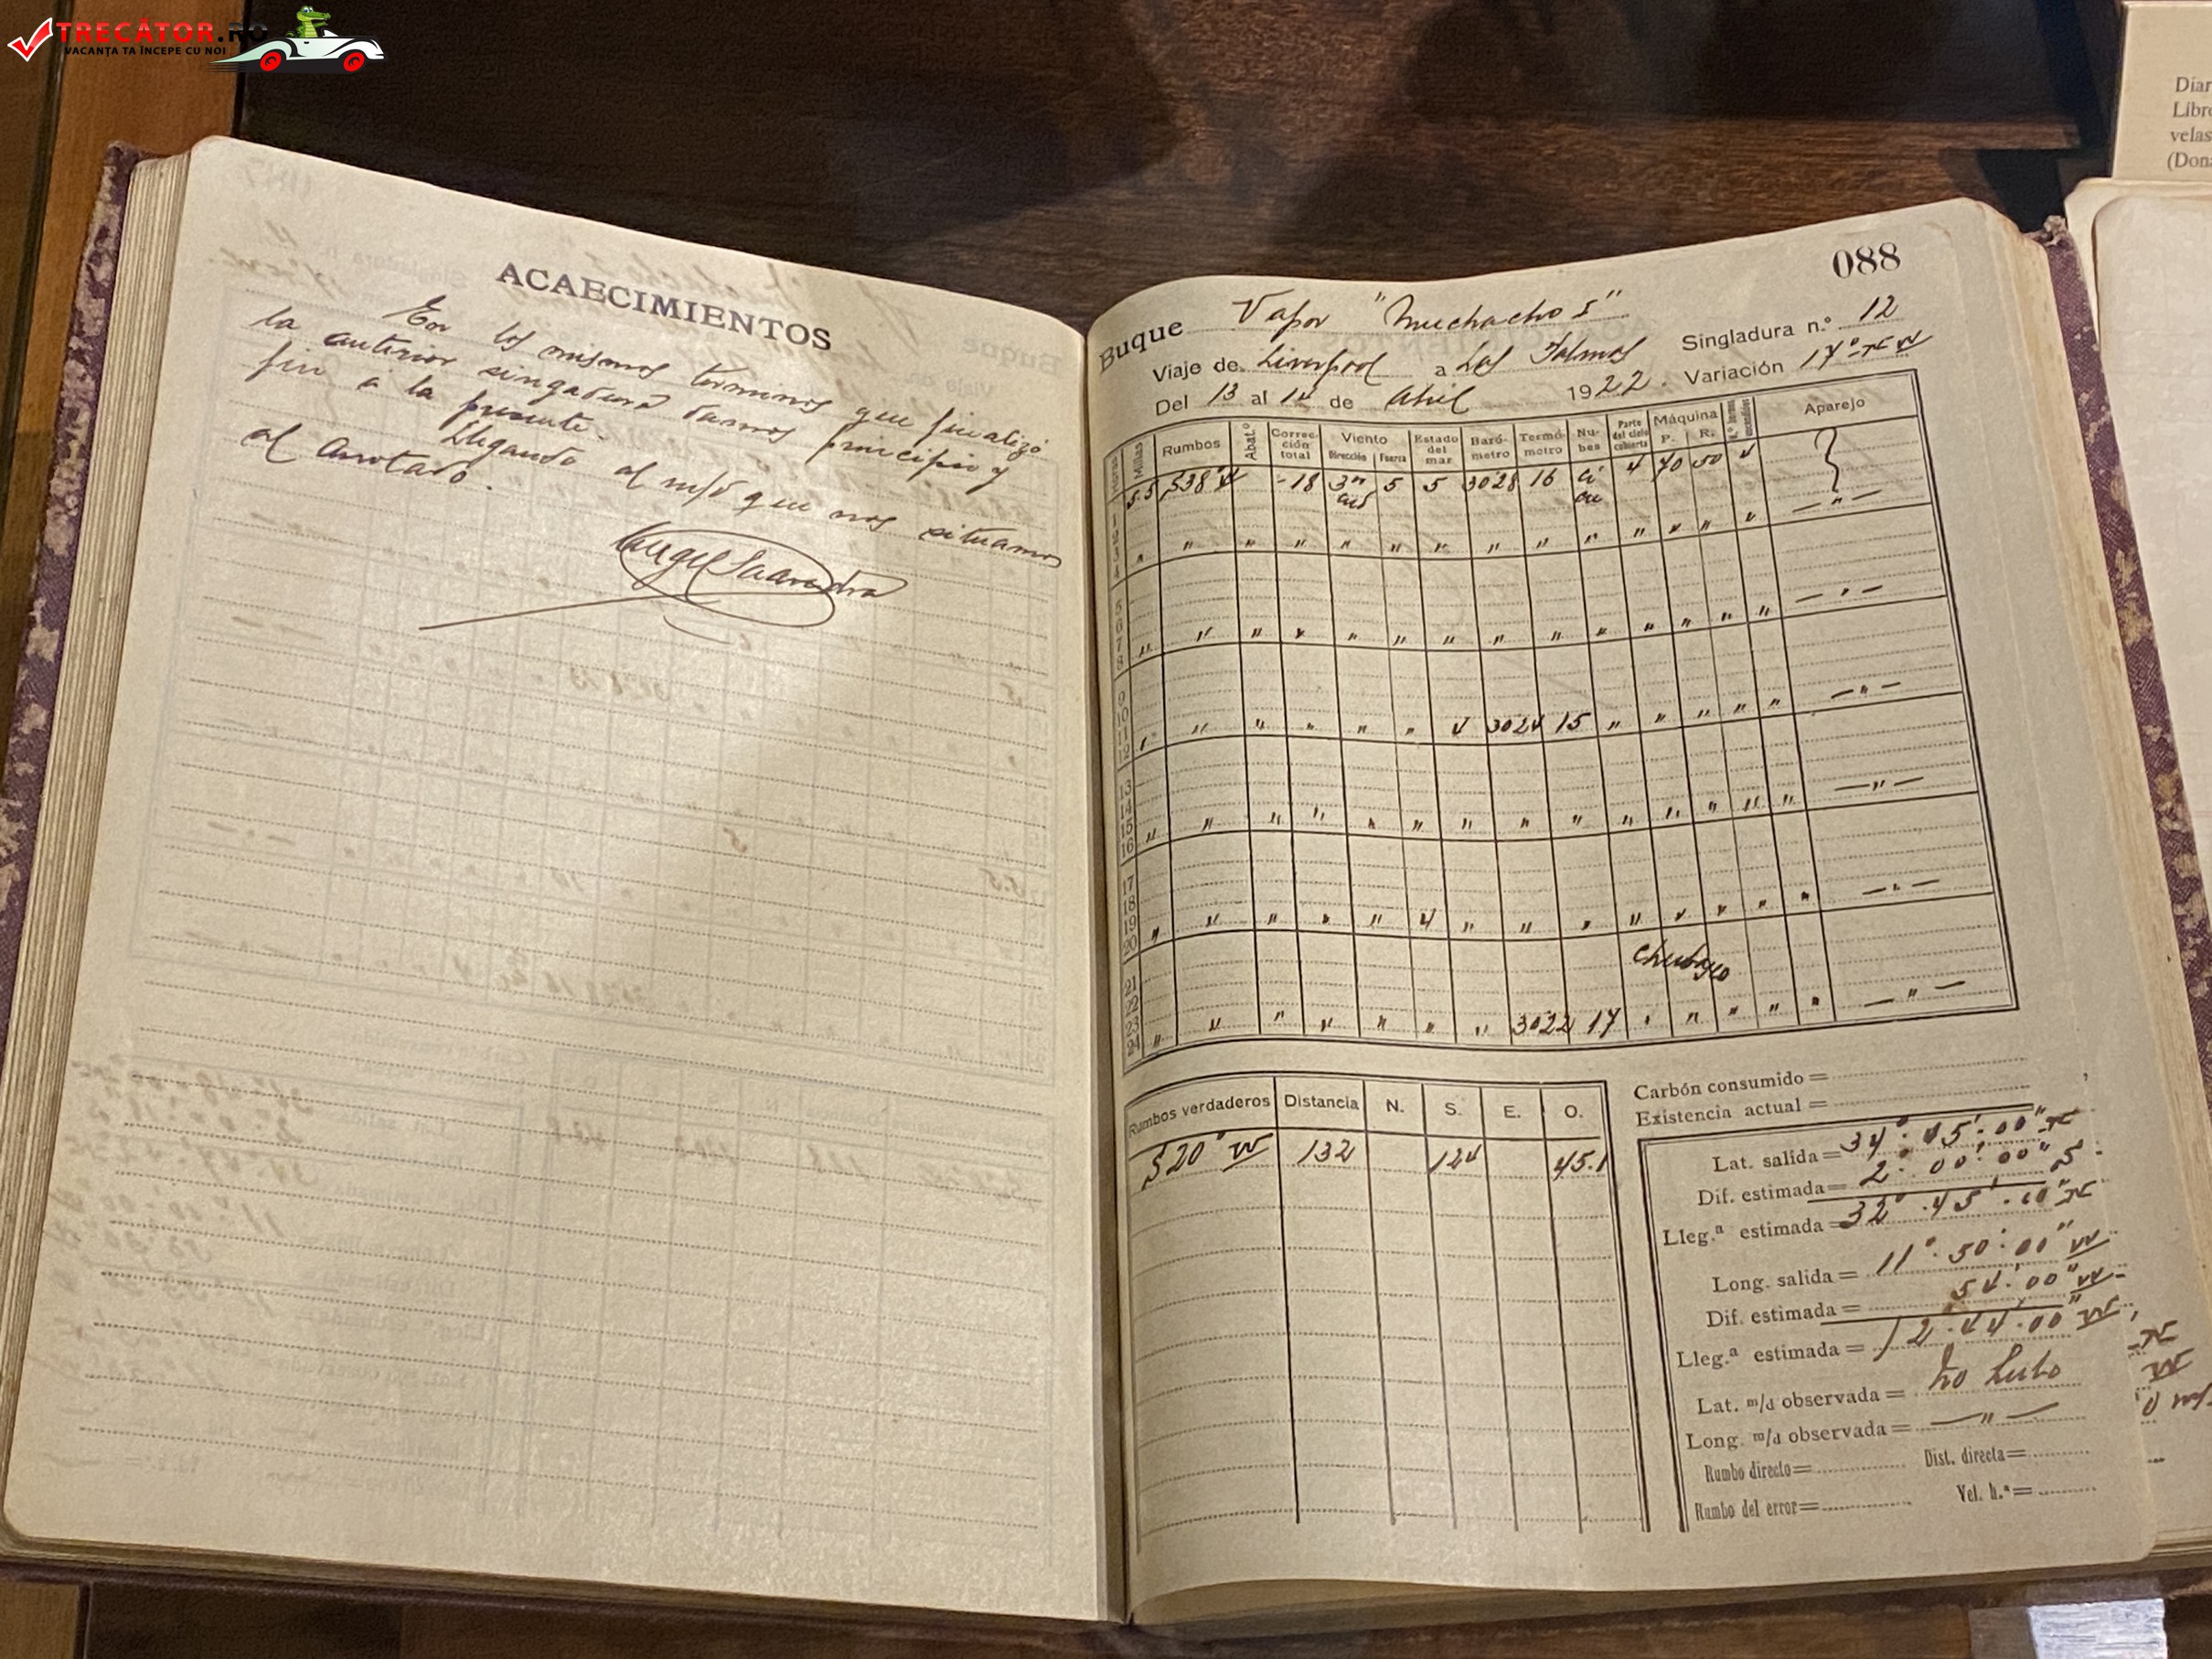 TRECĂTOR.RO
VACANȚA TA ÎNCEPE CU NOI
Diar
Libro
velas
(Dona
ACAECIMIENTOS
los mismos terminos que finalizó
la anterior singadura damos principio y
fin a la presente.
Llegando al m/d que nos situamos
al anotado.
Angel Saavedra
088
Buque Vapor "Muchacho I"
Singladura n.º 12
Viaje de Liverpool a Las Palmas
Variación 17º
Del 13 al 14 de Abril 1922.
Horas Millas Rumbos Abat.º Corrección total Viento Dirección Fuerza Estado del mar Barómetro Termómetro Nubes Parte del cielo cubierta Máquina P. R. Aparejo
5.5 S38ºW -18 5 5 3028 16 4 70 50 4
1
2
3
4 " " " " " " " " " " " " " " — " —
5
6
7
8 " " " " " " " " " " " " " " — " —
9
10
11
12 " " " " " " 4 3024 15 " " " " " — " —
13
14
15
16 " " " " " " " " " " " " " " — " —
17
18
19
20 " " " " " 4 " " " " " " " " — " —
Chubasco
21
22
23
24 " " " " " " " 3022 17 " " " " " — " —
Rumbos verdaderos Distancia N. S. E. O.
S20ºW 132 124 45.1
Carbón consumido =
Existencia actual =
Lat. salida = 34º.45'.00" N
Dif. estimada = 2º.00'.00" S
Lleg.ª estimada = 32º.45'.00" N
Long. salida = 11º.50'.00" W
Dif. estimada = 54'.00" W
Lleg.ª estimada = 12.44.00" W
Lat. m/d observada = No hubo
Long. m/d observada = — " —
Rumbo directo = Dist. directa =
Rumbo del error = Vel. h.ª =
N
W